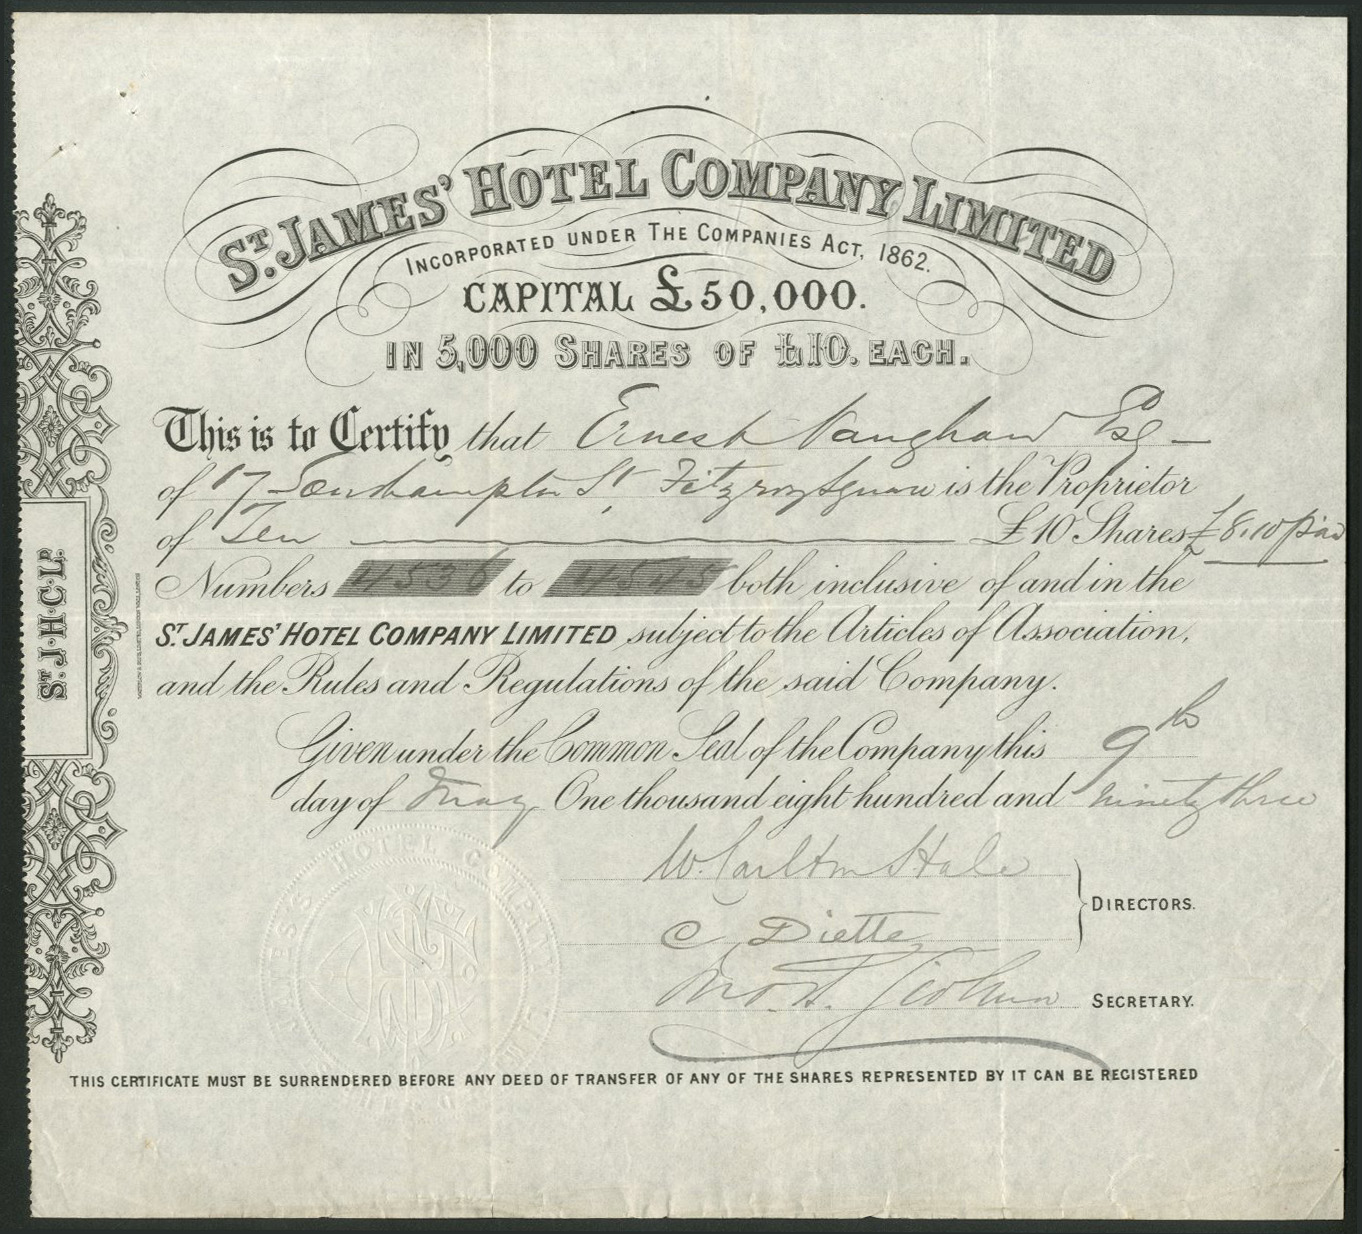 ST. JAMES' HOTEL COMPANY LIMITED
INCORPORATED UNDER THE COMPANIES ACT, 1862.
CAPITAL £50,000.
IN 5,000 SHARES OF £10. EACH.
This is to Certify that Ernest Vaughan Esq
of 17 Southampton St Fitzroy Square is the Proprietor
of Ten £10 Shares £8.10 paid
Numbers 4536 to 4545 both inclusive of and in the
ST. JAMES' HOTEL COMPANY LIMITED subject to the Articles of Association,
and the Rules and Regulations of the said Company.
Given under the Common Seal of the Company this 9th
day of May One thousand eight hundred and ninety three
W. Carlton Hale
C Diette
DIRECTORS.
SECRETARY.
THIS CERTIFICATE MUST BE SURRENDERED BEFORE ANY DEED OF TRANSFER OF ANY OF THE SHARES REPRESENTED BY IT CAN BE REGISTERED
ST. J. H. C. LD.
HOTEL COMPANY